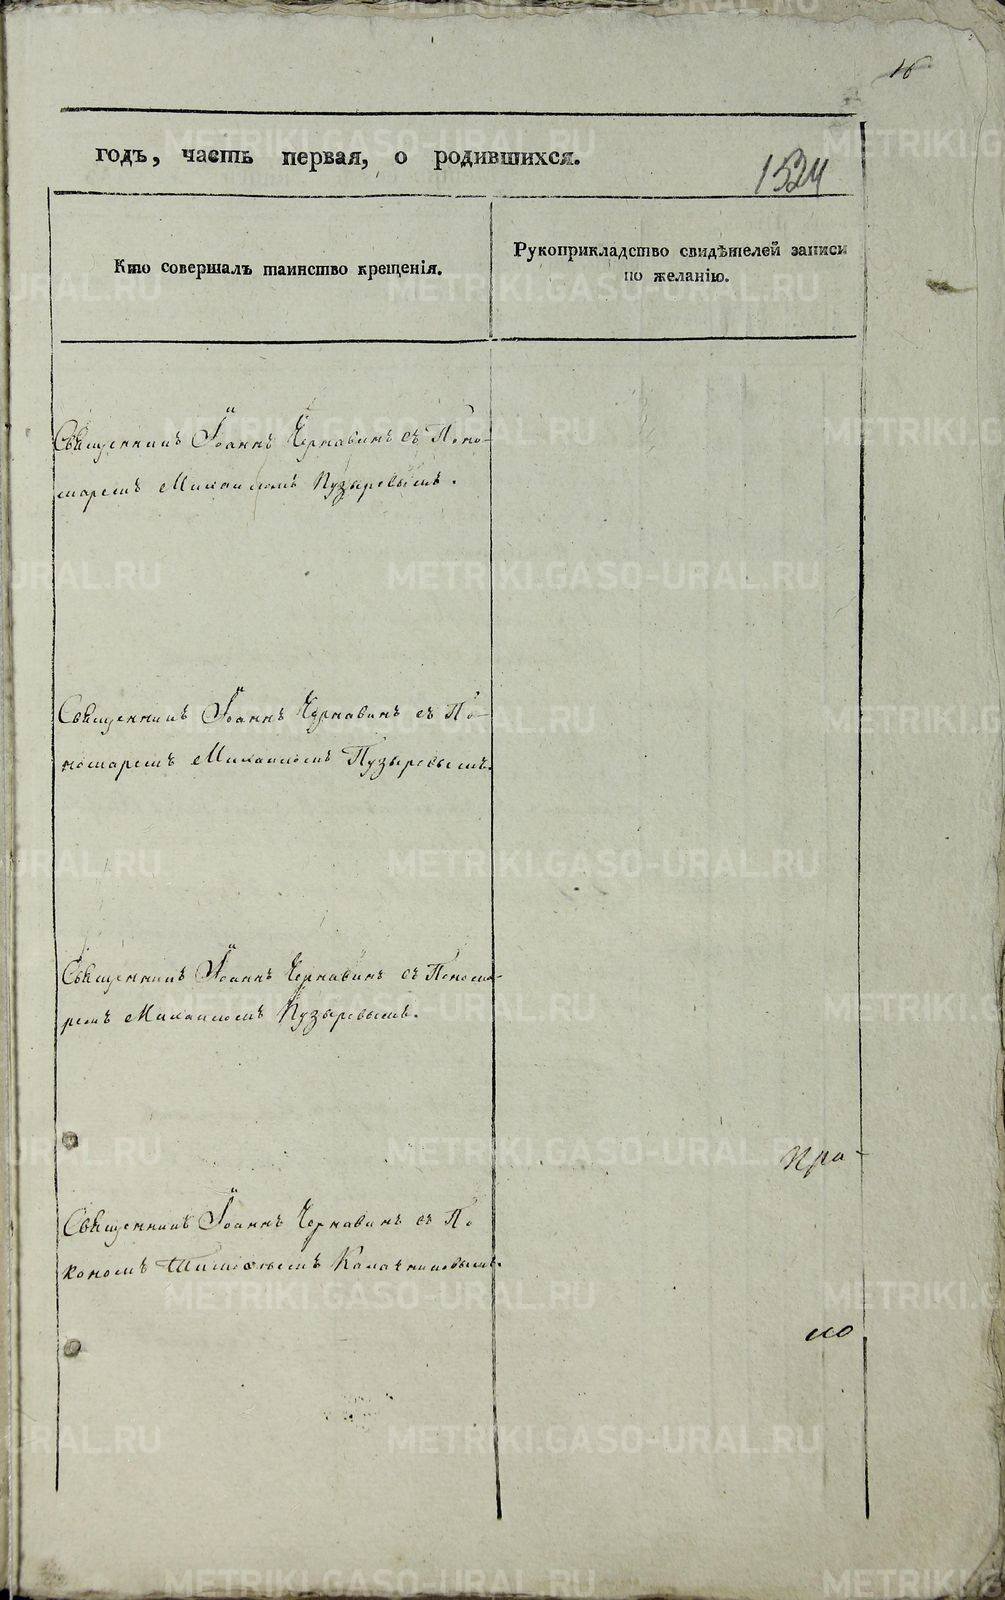 16
годъ, часть первая, о родившихся.
1524
Кто совершалъ таинство крещенія.
Рукоприкладство свидѣтелей записи
по желанію.
Священникъ Іоаннъ Чернавинъ съ Поно-
маремъ Михаиломъ Пузыревымъ.
Священникъ Іоаннъ Чернавинъ съ По-
номаремъ Михаиломъ Пузыревымъ.
Священникъ Іоаннъ Чернавинъ съ Понома-
ремъ Михаиломъ Пузыревымъ.
Пра-
Священникъ Іоаннъ Чернавинъ съ
Калачниковымъ.
METRIKI.GASO-URAL.RU